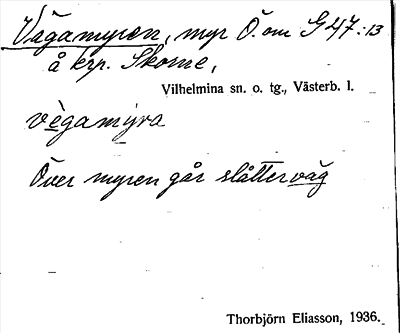 Vägamyren, myr Ö. om G 47:13
å krp. Skorne,
Vilhelmina sn. o. tg., Västerb. l.
vègamýra
Över myren går slåtterväg
Thorbjörn Eliasson, 1936.